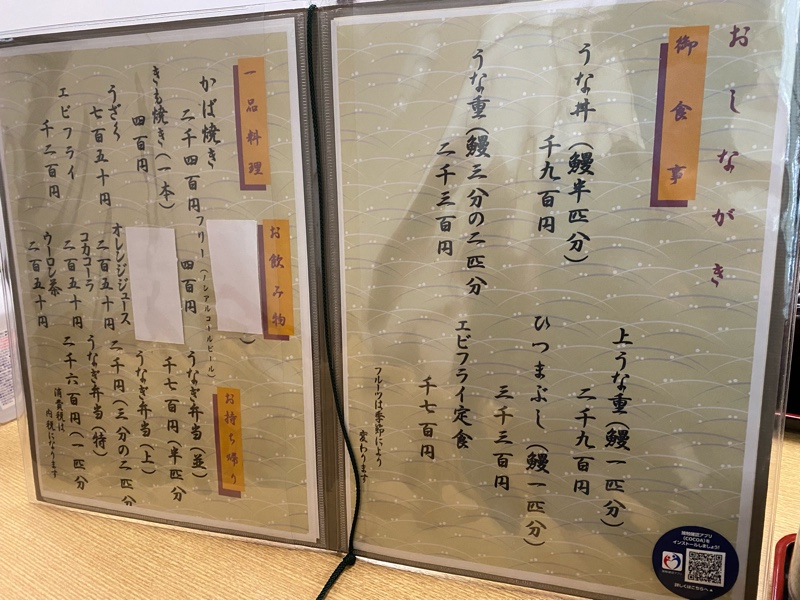 おしながき
御食事
うな丼（鰻半匹分）
千九百円
うな重（鰻三分の二匹分
二千三百円
上うな重（鰻一匹分）
二千九百円
ひつまぶし（鰻一匹分）
三千三百円
エビフライ定食
千七百円
フルーツは季節により
変わります
一品料理
かば焼き
二千四百円
きも焼き（一本）
四百円
うざく
七百五十円
エビフライ
千二百円
お飲み物
フリー（ノンアルコールビール）
四百円
オレンジジュース
二百五十円
コカコーラ
二百五十円
ウーロン茶
二百五十円
お持ち帰り
うなぎ弁当（並）
千七百円（半匹分
うなぎ弁当（上）
二千円（三分の二匹分
うなぎ弁当（特）
二千六百円（一匹分
消費税は
内税になります
接触確認アプリ
(COCOA)を
インストールしましょう!
詳しくはこちらへ